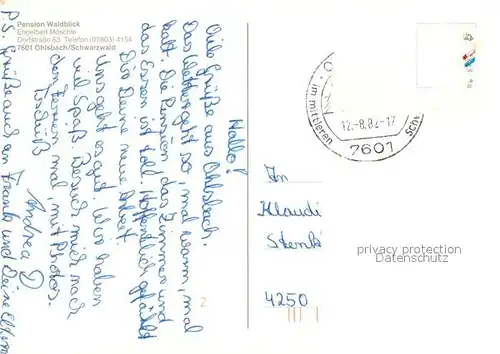 Pension Waldblick
Engelbert Möschle
Dorfstraße 63 Telefon (07803) 4154
7601 Ohlsbach/Schwarzwald
Hallo!
Viele Grüße aus Ohlsbach.
Das Wetter geht so, mal warm, mal
kalt. Die Pension, das Zimmer und
das Essen ist toll. Hoffentlich gefällt
Dir Deine neue Arbeit.
Uns geht es gut. Wir haben
viel Spaß. Besuch mich nach
den Ferien mal, mit Photos.
Tschüß
Andrea D
P.S. Grüße auch an Frank und Deine Eltern
im mittleren
12.-8.82-17
7601
An
Klaudi
Stenk
4250
privacy protection
Datenschutz
2